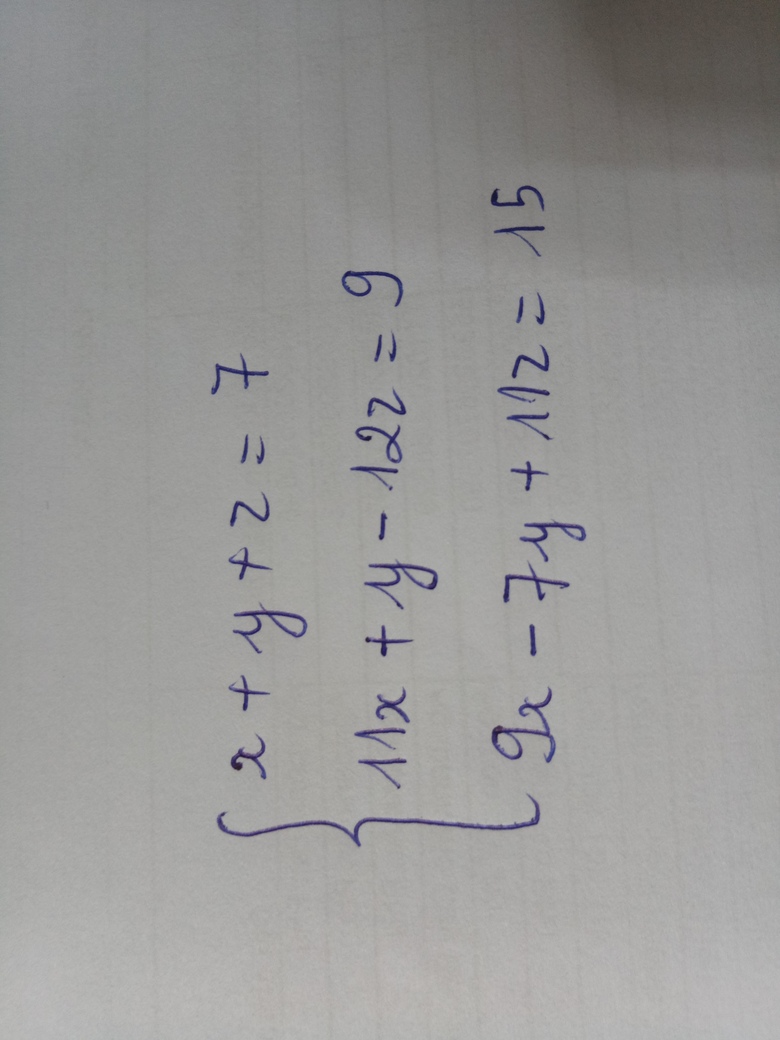 x + y + z = 7
11x + y - 12z = 9
9x - 7y + 11z = 15